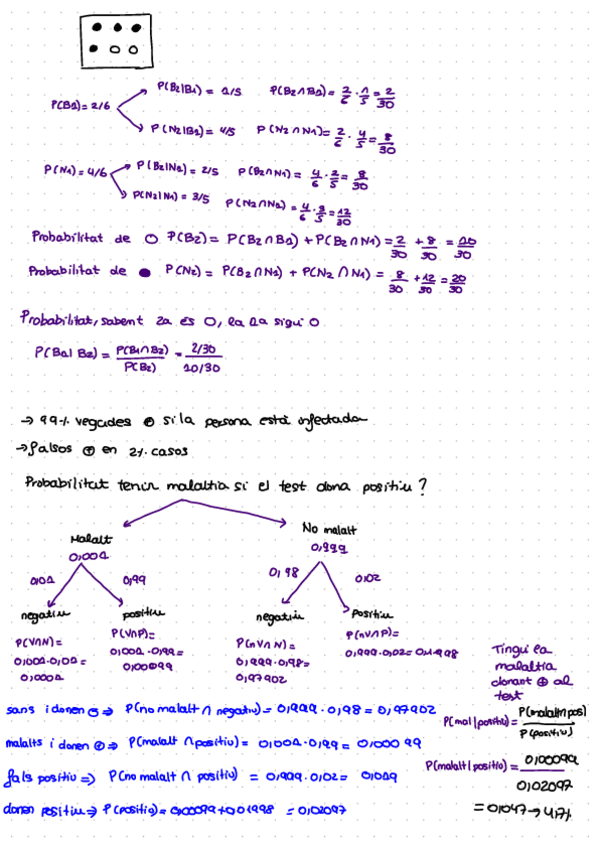 P(B1) = 2/6
P(B2|B1) = 1/5 P(B2∩B1) = 2/6 · 1/5 = 2/30
P(N2|B1) = 4/5 P(N2∩B1) = 2/6 · 4/5 = 8/30
P(N1) = 4/6
P(B2|N1) = 2/5 P(B2∩N1) = 4/6 · 2/5 = 8/30
P(N2|N1) = 3/5 P(N2∩N1) = 4/6 · 3/5 = 12/30
Probabilitat de ○ P(B2) = P(B2∩B1) + P(B2∩N1) = 2/30 + 8/30 = 10/30
Probabilitat de ● P(N2) = P(B2∩N1) + P(N2∩N1) = 8/30 + 12/30 = 20/30
Probabilitat, sabent 2a és O, la 1a sigui O
P(B1|B2) = P(B1∩B2)/P(B2) = 2/30 / 10/30
→ 99% vegades ⊕ si la persona està infectada
→ falsos ⊕ en 2% casos
Probabilitat tenir malaltia si el test dona positiu?
Malalt
0,001
No malalt
0,999
0,01 0,99
0,98 0,02
negatiu positiu
negatiu Positiu
P(V∩N)=
0,001·0,01=
0,00001
P(V∩P)=
0,001·0,99=
0,00099
P(nV∩N)=
0,999·0,98=
0,97902
P(nV∩P)=
0,999·0,02=0,01998
Tingui la
malaltia
donant ⊕ al
test
sans i donen ⊖ ⇒ P(no malalt ∩ negatiu) = 0,999·0,98 = 0,97902
malalts i donen ⊕ ⇒ P(malalt ∩ positiu) = 0,001·0,99 = 0,00099
fals positiu ⇒ P(no malalt ∩ positiu) = 0,999·0,02 = 0,019
donen positiu ⇒ P(positiu) = 0,00099+0,01998 = 0,02097
P(mal|positiu) = P(malalt∩pos)/P(positiu)
P(malalt|positiu) = 0,00099/0,02097
= 0,047 → 4,7%